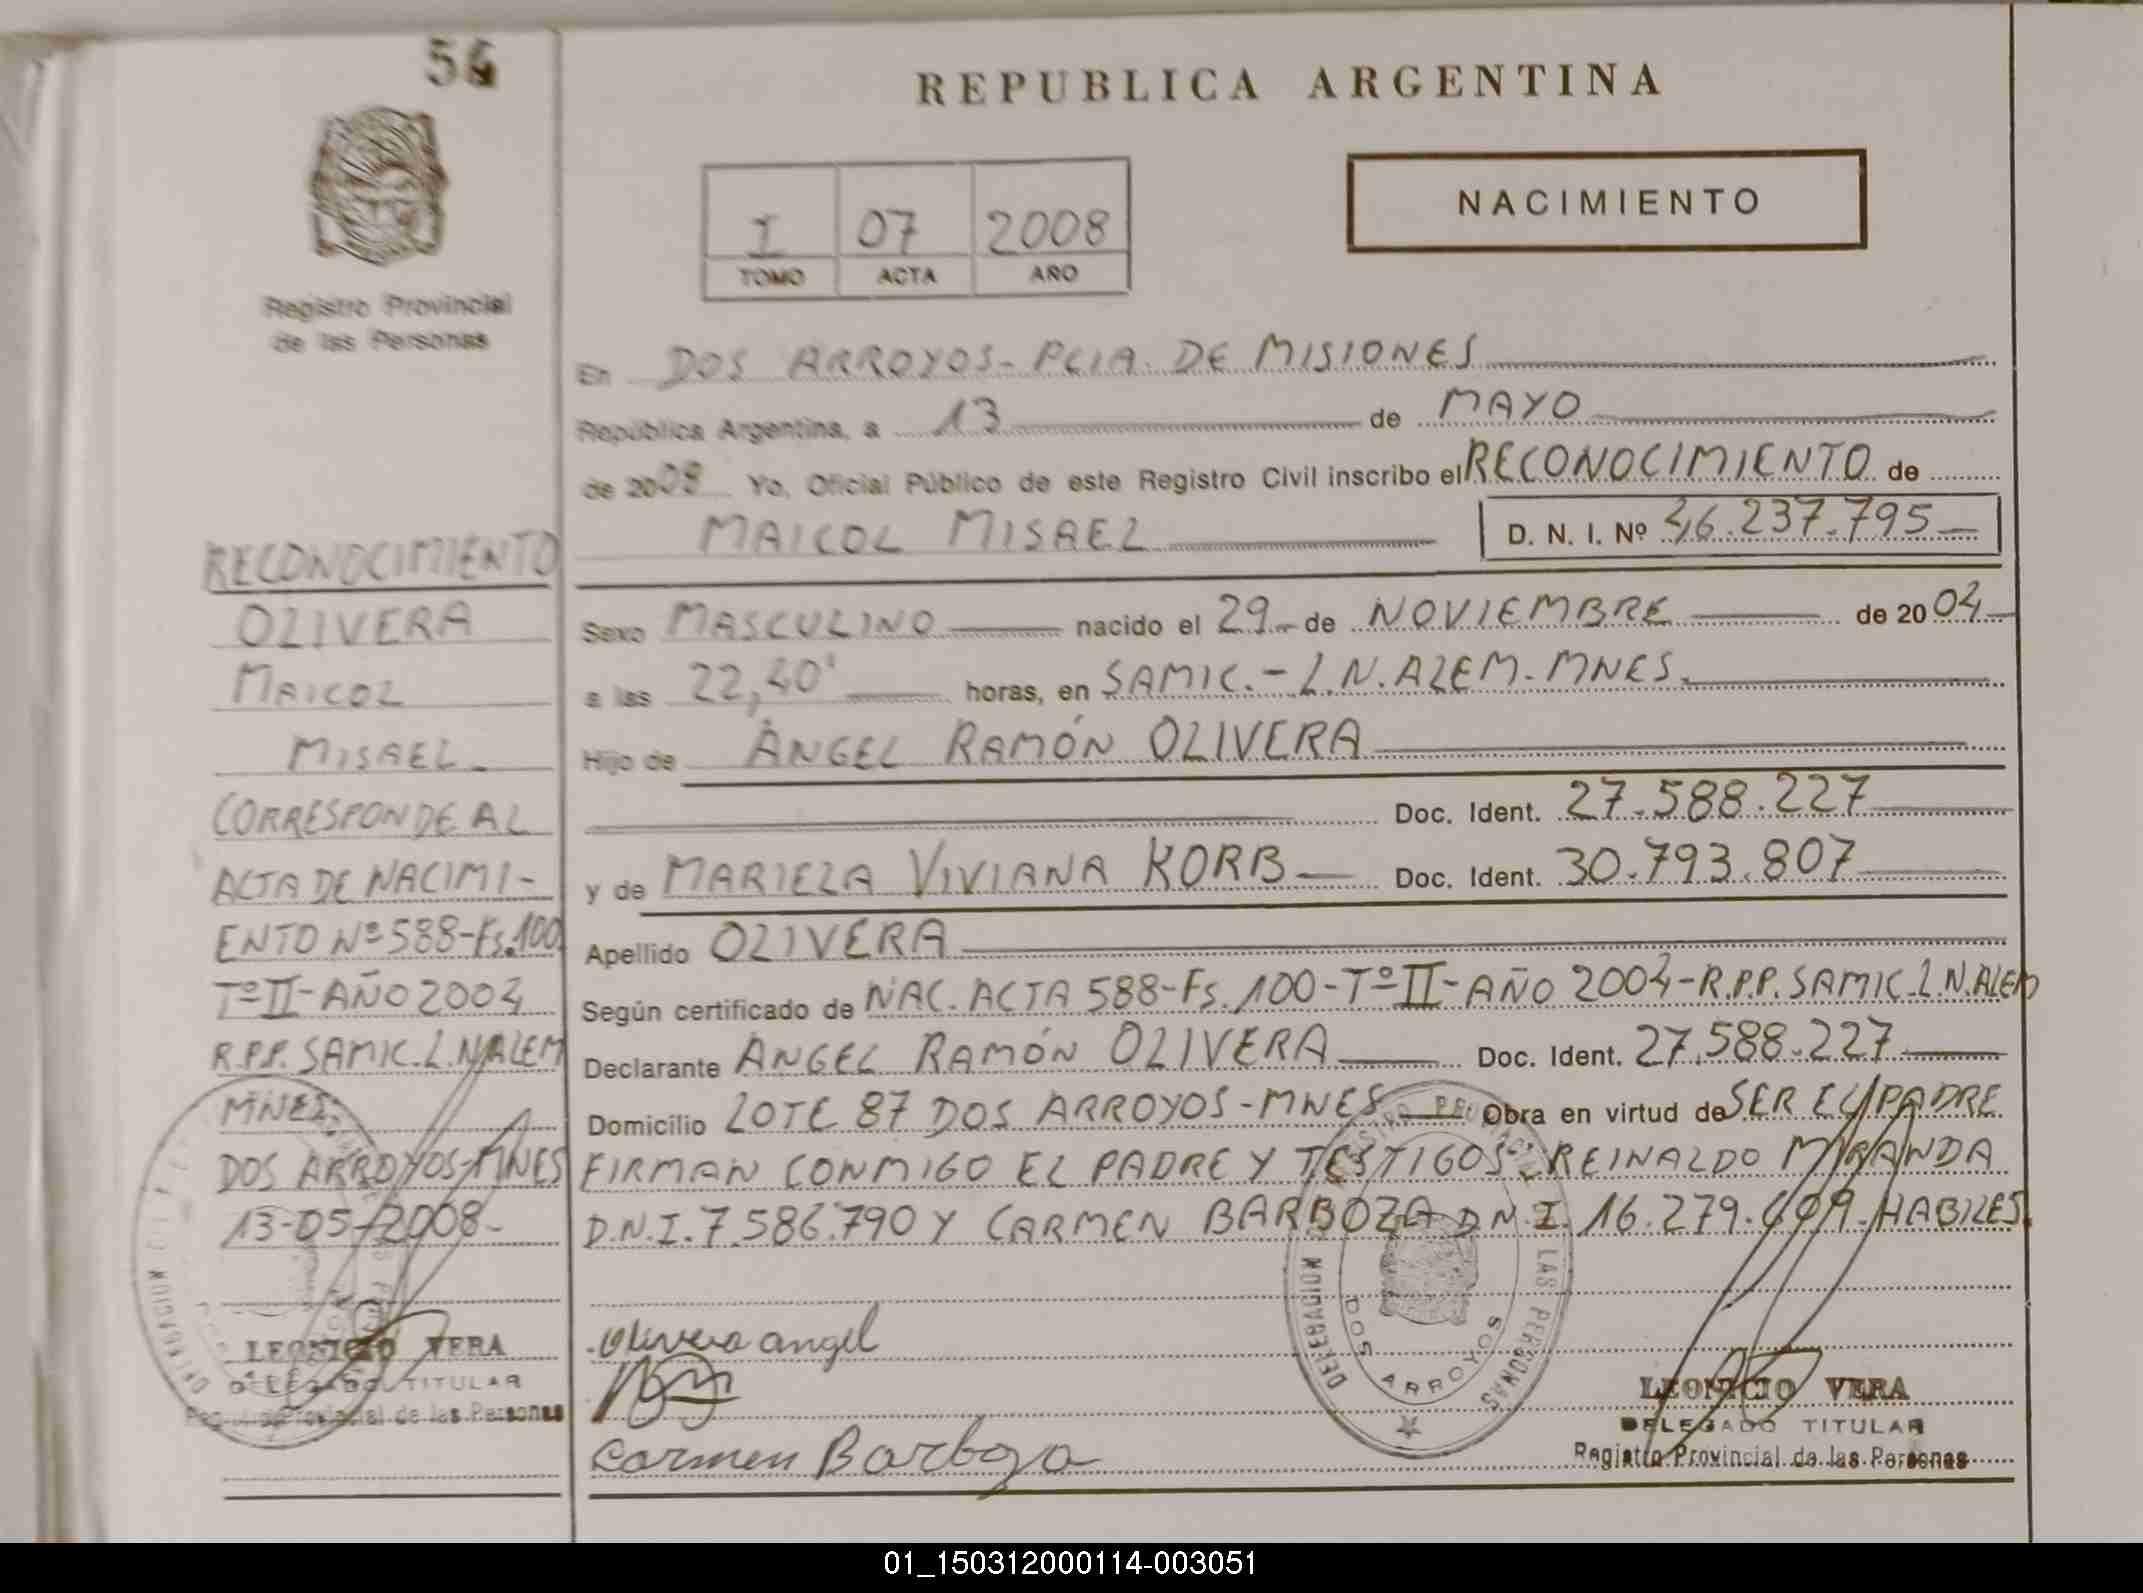 54
REPUBLICA ARGENTINA
NACIMIENTO
I 07 2008
TOMO ACTA AÑO
Registro Provincial
de las Personas
En DOS ARROYOS - PCIA. DE MISIONES
República Argentina, a 13 de MAYO
de 2008 Yo, Oficial Público de este Registro Civil inscribo el RECONOCIMIENTO de
MAICOL MISAEL D. N. I. Nº 46.237.795
Sexo MASCULINO nacido el 29 de NOVIEMBRE de 2004
a las 22,40' horas, en SAMIC. - L.N. ALEM. MNES.
Hijo de ÁNGEL RAMÓN OLIVERA
Doc. Ident. 27.588.227
y de MARIELA VIVIANA KORB Doc. Ident. 30.793.807
Apellido OLIVERA
Según certificado de NAC. ACTA 588-Fs. 100-Tº II-AÑO 2004-R.P.P. SAMIC.L.N.ALEM
Declarante ÁNGEL RAMÓN OLIVERA Doc. Ident. 27.588.227
Domicilio LOTE 87 DOS ARROYOS-MNES Obra en virtud de SER EL PADRE
FIRMAN CONMIGO EL PADRE Y TESTIGOS REINALDO MIRANDA
D.N.I. 7.586.790 Y CARMEN BARBOZA D.N.I. 16.279. HABILES.
Olivera angel
Carmen Barboza
LEONICIO VERA
DELEGADO TITULAR
Registro Provincial de las Personas
DELEGACION DOS ARROYOS
REGISTRO PROVINCIAL DE LAS PERSONAS
RECONOCIMIENTO
OLIVERA
MAICOL
MISAEL
CORRESPONDE AL
ACTA DE NACIMI-
ENTO Nº 588-Fs.100
Tº II-AÑO 2004
R.P.P. SAMIC.L.N.ALEM
MNES.
DOS ARROYOS-MNES
13-05-2008-
LEONICIO VERA
DELEGADO TITULAR
Registro Provincial de las Personas
01_150312000114-003051